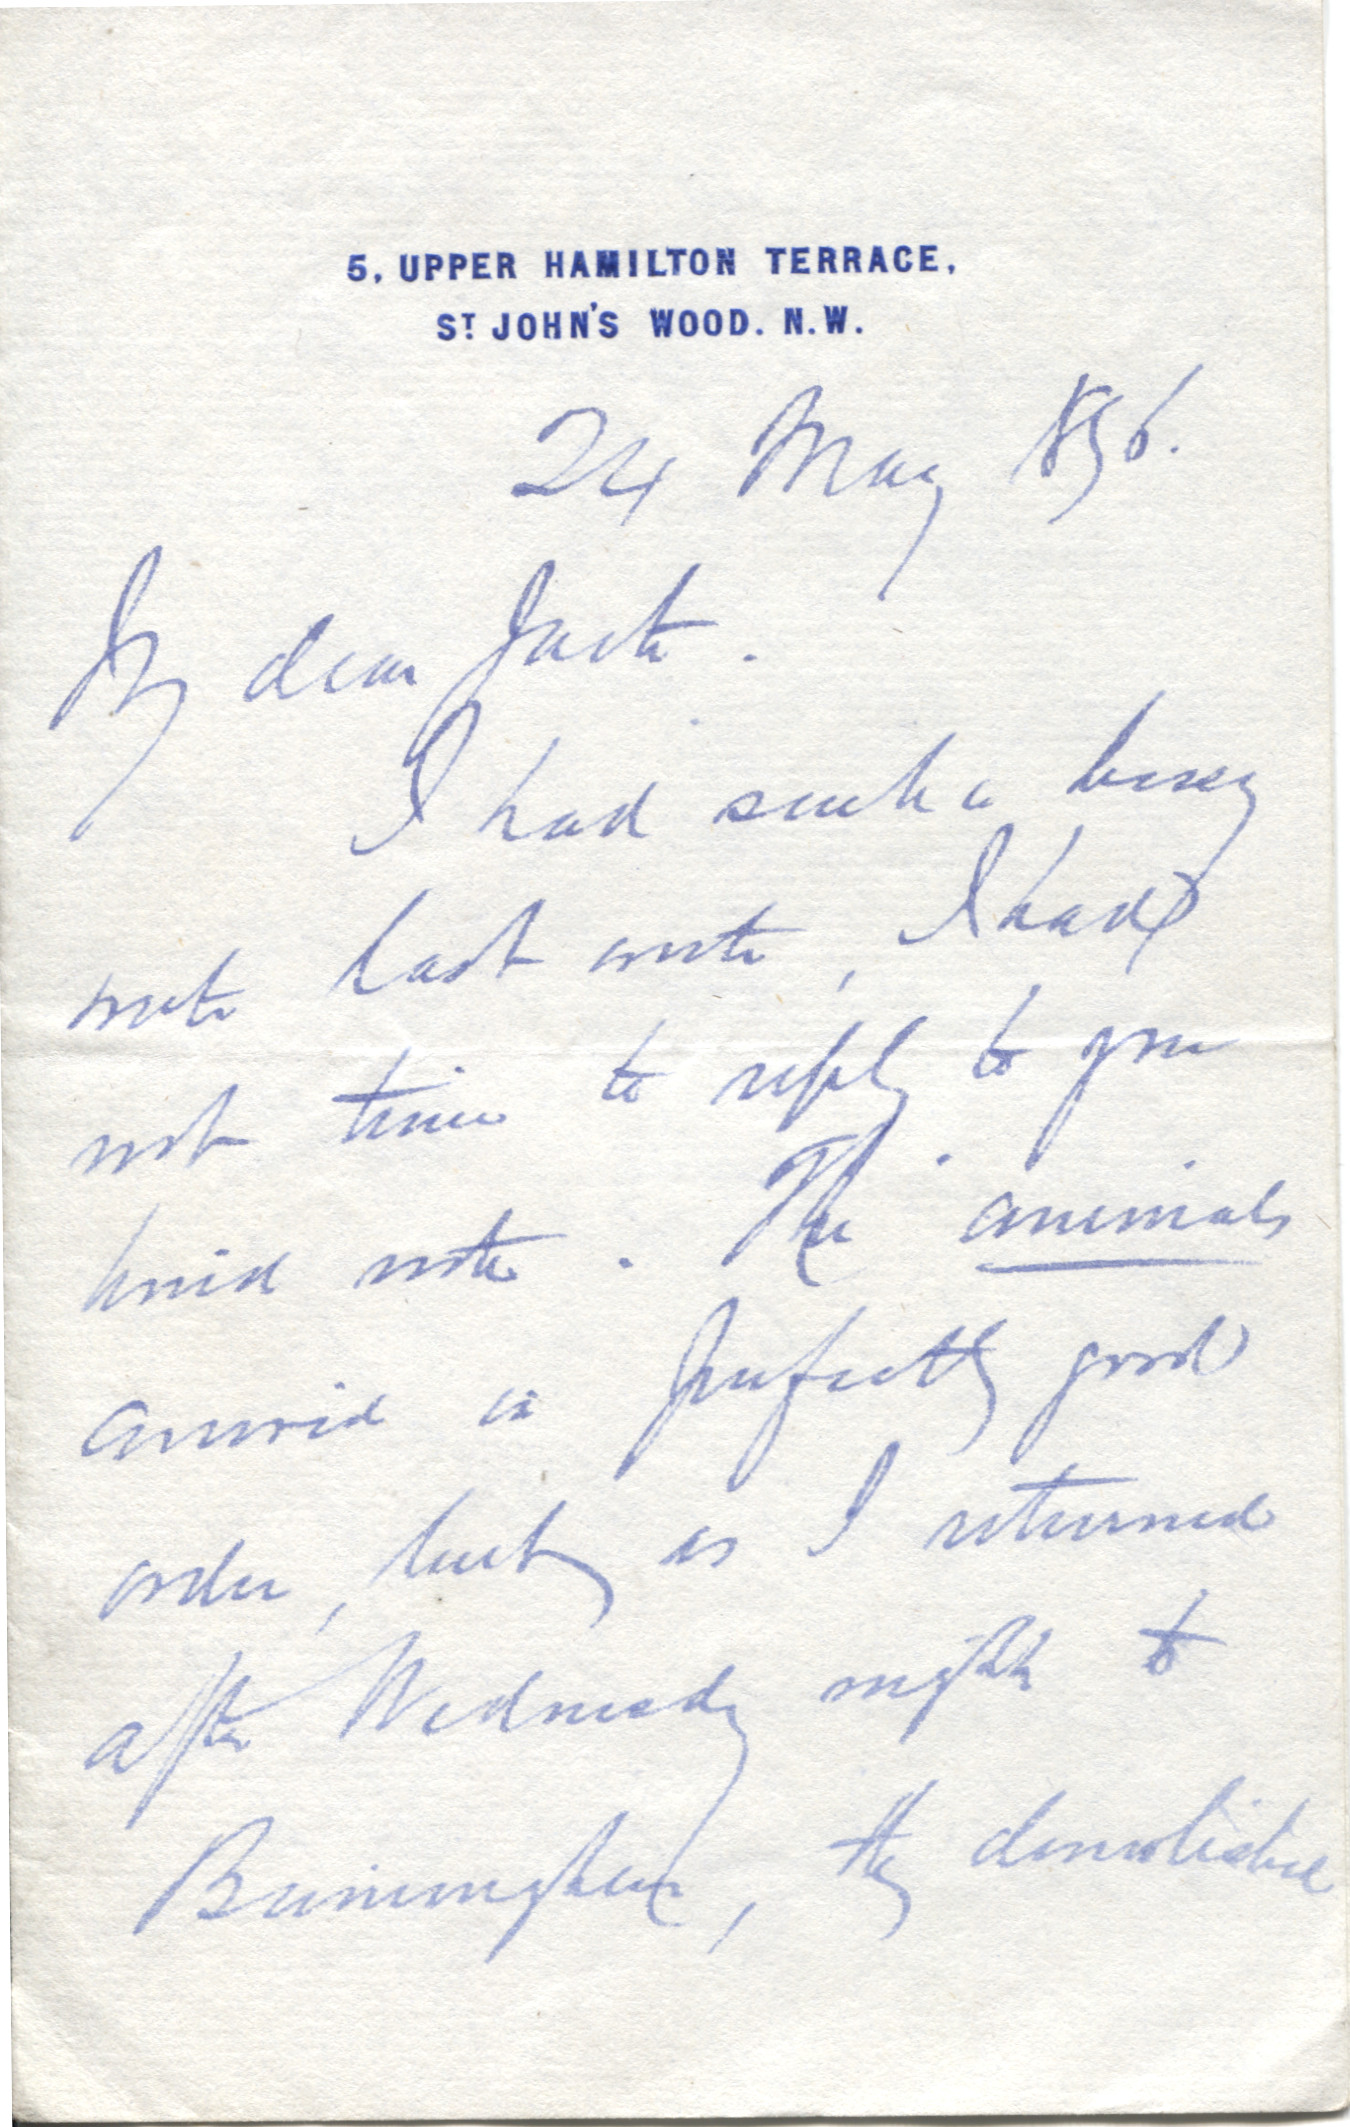 5, UPPER HAMILTON TERRACE,
ST JOHN'S WOOD. N.W.
24 May 1896.
My dear Jack.
I had such a busy
week last week, I had
not time to reply to your
kind note. The animals
arrived in perfectly good
order, but, as I returned
after Wednesday night to
Birmingham, they demolished